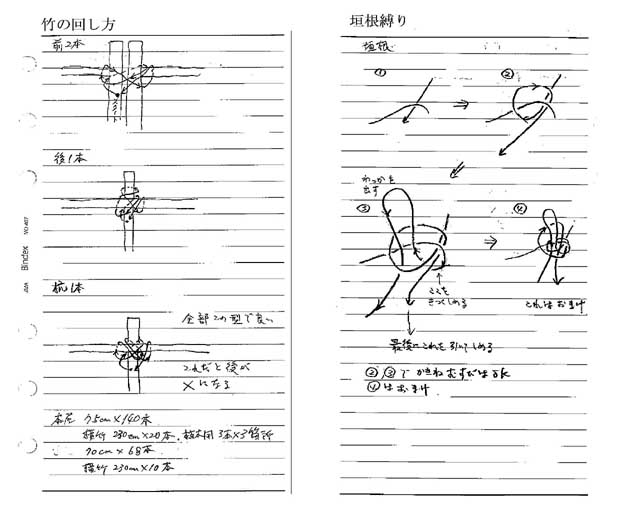 竹の回し方
前2本
スタート
後1本
杭1本
全部この型で良い
これだと後が
×になる
75cm×140本
横竹 230cm×20本、
3本×3箇所
70cm×68本
横竹 230cm×10本
Bindex
垣根縛り
垣根
①
②
わっかを
出す
③
④
ここを
きつくしめる
これはおまけ
最後にこれを引いてしめる
②③でかきねむすびはOK
④はおまけ